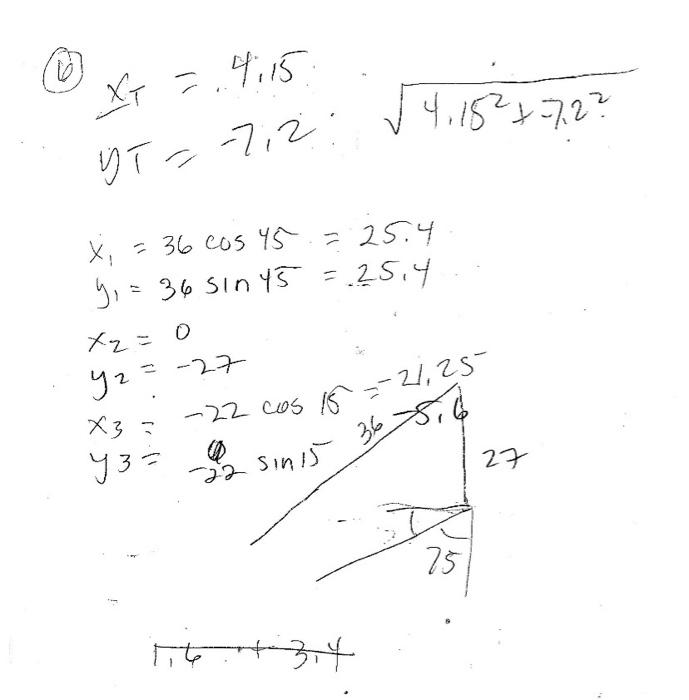 6
x_T = 4.15
√4.15² + -7.2²
y_T = -7.2
x₁ = 36 cos 45 = 25.4
y₁ = 36 sin 45 = 25.4
x₂ = 0
y₂ = -27
x₃ = -22 cos 15 = -21.25
y₃ = -22 sin 15 -5.6
36
27
75
1.6 + 3.4